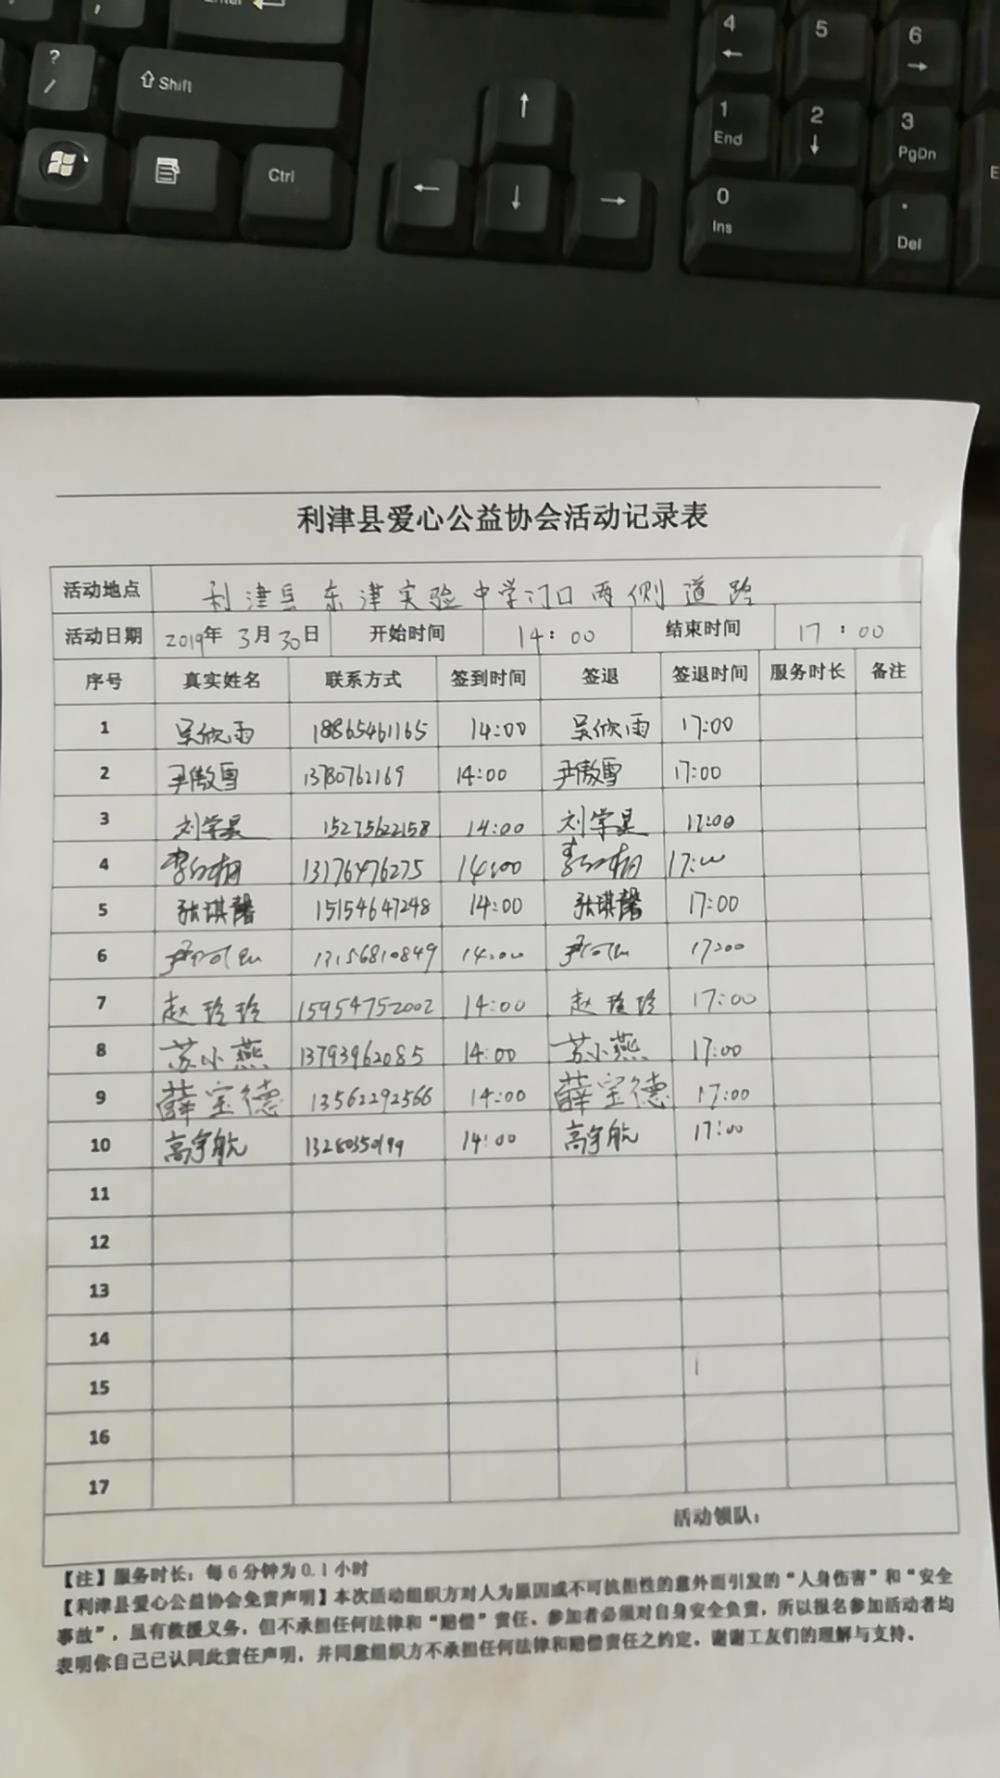 Enter
?
/
Shift
Ctrl
4
5
6
1
End
2
3
PgDn
0
Ins
.
Del
利津县爱心公益协会活动记录表
活动地点 利津县东津实验中学门口两侧道路
活动日期 2019年3月30日 开始时间 14:00 结束时间 17:00
序号 真实姓名 联系方式 签到时间 签退 签退时间 服务时长 备注
1 吴欣雨 18865461165 14:00 吴欣雨 17:00
2 尹傲雪 13780762169 14:00 尹傲雪 17:00
3 刘学星 15275622158 14:00 刘学星 17:00
4 13176476275 14:00 17:00
5 张琪馨 15154647248 14:00 张琪馨 17:00
6 13156810849 14:00 17:00
7 赵玲玲 15954752002 14:00 赵玲玲 17:00
8 苏小燕 13793962085 14:00 苏小燕 17:00
9 薛宝德 13562292566 14:00 薛宝德 17:00
10 高宇航 14:00 高宇航 17:00
11
12
13
14
15
16
17
活动领队：
【注】服务时长：每6分钟为0.1小时
【利津县爱心公益协会免责声明】本次活动组织方对人为原因或不可抗拒性的意外而引发的“人身伤害”和“安全
事故”，虽有救援义务，但不承担任何法律和“赔偿”责任。参加者必须对自身安全负责，所以报名参加活动者均
表明你自己已认同此责任声明，并同意组织方不承担任何法律和赔偿责任之约定。谢谢工友们的理解与支持。